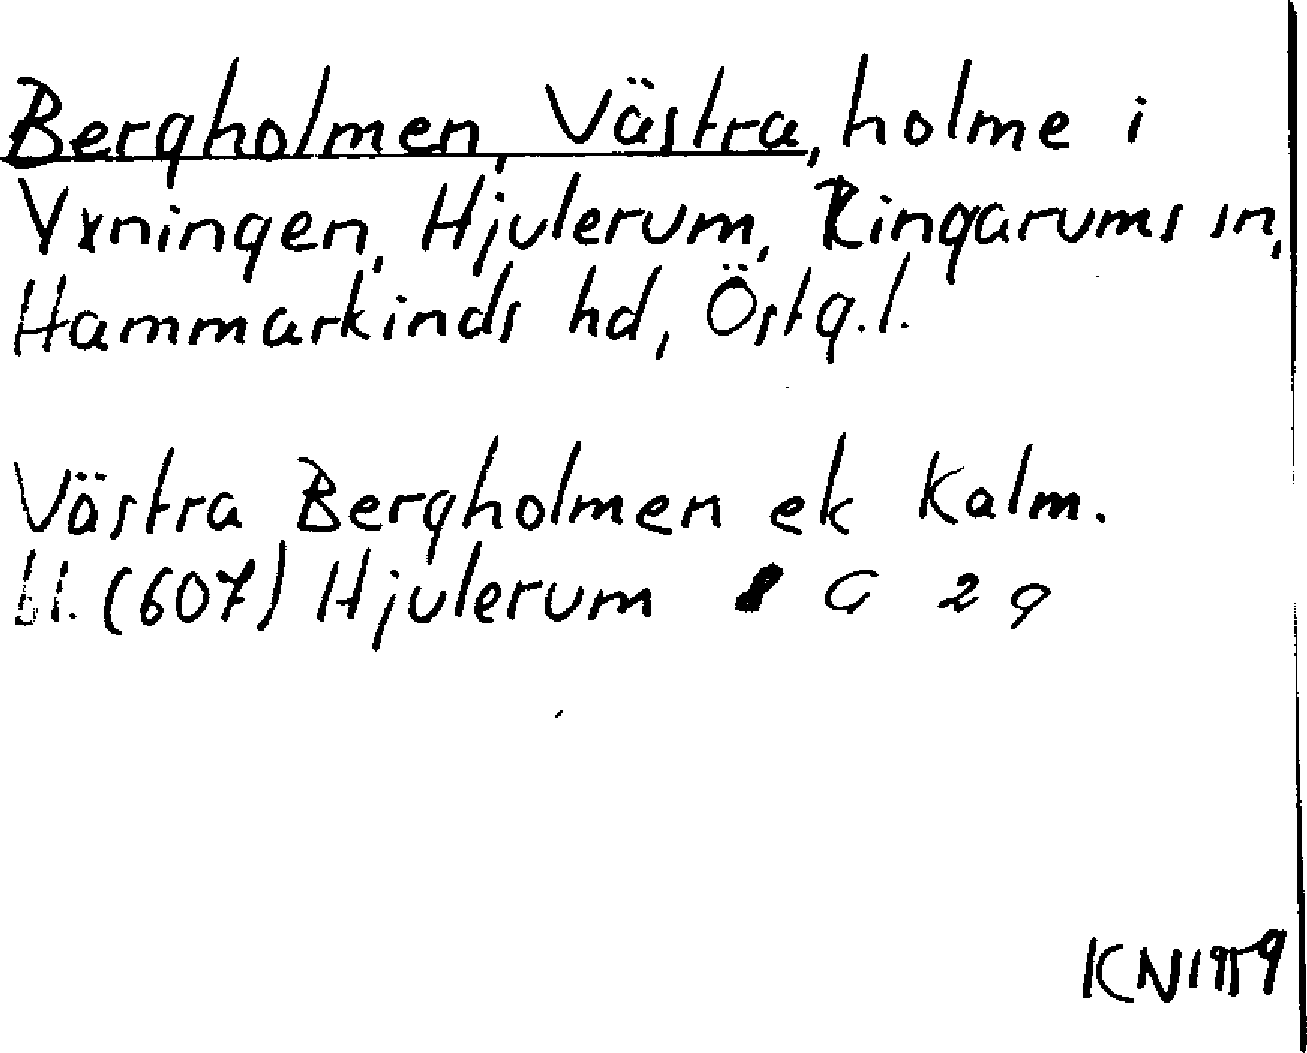 Bergholmen, Västra, holme i
Yxningen, Hjulerum, Ringarums sn,
Hammarkinds hd, Östg.l.
Västra Bergholmen ek Kalm.
bl. (607) Hjulerum G 29